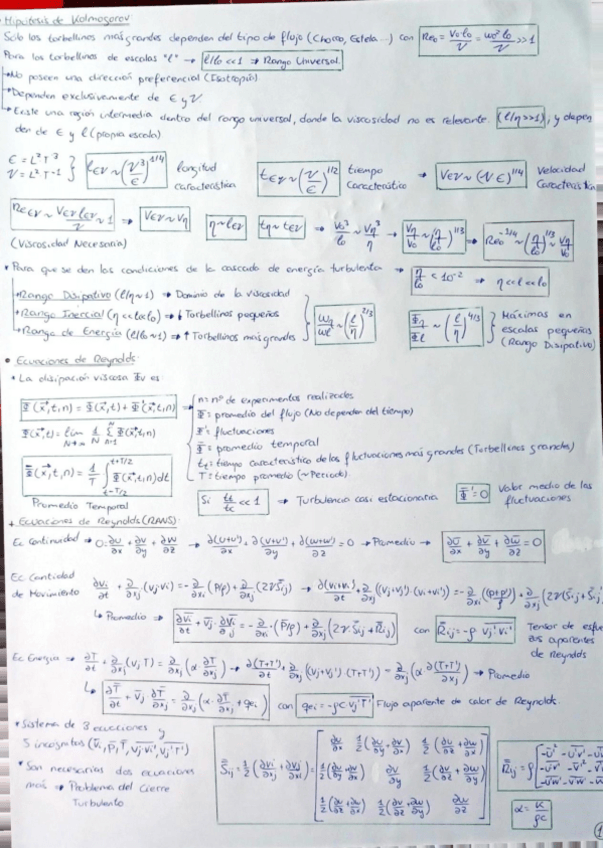 Hipótesis de Kolmogorov:
Solo los torbellinos mas grandes dependen del tipo de flujo (Chorro, Estela...) con Re₀ = V₀l₀/ν = ω₀l₀²/ν >> 1
Para los torbellinos de escalas "l" → l/l₀ << 1 ⇒ Rango Universal.
→ No poseen una dirección preferencial (Isotropía)
→ Dependen exclusivamente de ε y ν.
→ Existe una región intermedia dentro del rango universal, donde la viscosidad no es relevante. (l/η >> 1), y depen
den de ε y l (propia escala)
ε = L² T⁻³
ν = L² T⁻¹
l_εν ~ (ν³/ε)^1/4 longitud característica
t_εν ~ (ν/ε)^1/2 tiempo Característico → V_εν ~ (νε)^1/4 Velocidad Característica
Re_εν ~ V_εν l_εν/ν ~ 1 → V_εν ~ V_η η ~ l_εν t_η ~ t_εν → V₀³/l₀ ~ V_η³/η → V_η/V₀ ~ (η/l₀)^1/3 → Re₀^-1/4 ~ (η/l₀)^1/3 ~ V_η/V₀
(Viscosidad Necesaria)
• Para que se den las condiciones de la cascada de energía turbulenta → η/l₀ < 10⁻² ⇒ η << l << l₀
→ Rango Disipativo (l/η ~ 1) → Dominio de la viscosidad
→ Rango Inercial (η << l << l₀) → ↓ Torbellinos pequeños
→ Rango de Energía (l/l₀ ~ 1) → ↑ Torbellinos mas grandes
ω_η/ω_l ~ (l/η)^2/3 Φ_η/Φ_l ~ (l/η)^4/3
Máximas en
escalas pequeñas
(Rango Disipativo)
• Ecuaciones de Reynolds:
• La disipación viscosa Φv es:
Φ(x⃗,t,n) = Φ̄(x⃗,t) + Φ'(x⃗,t,n)
Φ̄(x⃗,t) = lim N→∞ 1/N Σ n=1 N Φ(x⃗,t,n)
Φ̄(x⃗,t,n) = 1/T ∫ t-T/2 t+T/2 Φ(x⃗,t,n)dt
Promedio Temporal
n = nº de experimentos realizados
Φ̄ = promedio del flujo (No depende del tiempo)
Φ' = fluctuaciones
Φ̄ = promedio temporal
t_t = tiempo característico de las fluctuaciones mas grandes (Torbellinos grandes)
T = tiempo promedio (~Periodo)
Si t_t/t_c << 1 → Turbulencia casi estacionaria Φ̄' = 0 Valor medio de las fluctuaciones
+ Ecuaciones de Reynolds (RANS):
Ec Continuidad → 0 = ∂u/∂x + ∂v/∂y + ∂w/∂z → ∂(U+u')/∂x + ∂(V+v')/∂y + ∂(w+w')/∂z = 0 → Promedio → ∂ū/∂x + ∂v̄/∂y + ∂w̄/∂z = 0
Ec Cantidad
de Movimiento ∂vi/∂t + ∂/∂xj (vj·vi) = -∂/∂xi (P/ρ) + ∂/∂xj (2νS̄ij) → ∂(vi+vi')/∂t + ∂/∂xj ((vj+vj')·(vi+vi')) = -∂/∂xi ((p+p')/ρ) + ∂/∂xj (2ν(S̄ij + S'ij
↳ Promedio → ∂v̄i/∂t + v̄j·∂v̄i/∂j = -∂/∂xi·(P̄/ρ) + ∂/∂xj (2ν·S̄ij + R̄ij) con R̄ij = -ρ vj' vi' Tensor de esfuer
zos aparentes
de Reynolds
Ec Energía → ∂T/∂t + ∂/∂xj (vj T) = ∂/∂xj (α ∂T/∂xj) → ∂(T+T')/∂t + ∂/∂xj ((vj+vj')·(T+T')) = ∂/∂xj (α ∂(T+T')/∂xj) → Promedio
↳ ∂T̄/∂t + v̄j ∂T̄/∂xj = ∂/∂xj (α·∂T̄/∂xj + qei) con qei = -ρc vj'T' Flujo aparente de calor de Reynolds
• Sistema de 3 ecuaciones y
5 incognitas (v̄i, p̄, T̄, vj'vi', vj'T')
• Son necesarias dos ecuaciones
mas → Problema del Cierre
Turbulento
S̄ij = 1/2 (∂v̄i/∂xj + ∂v̄j/∂xi) =
R̄ij = ρ
α = K/ρc
1